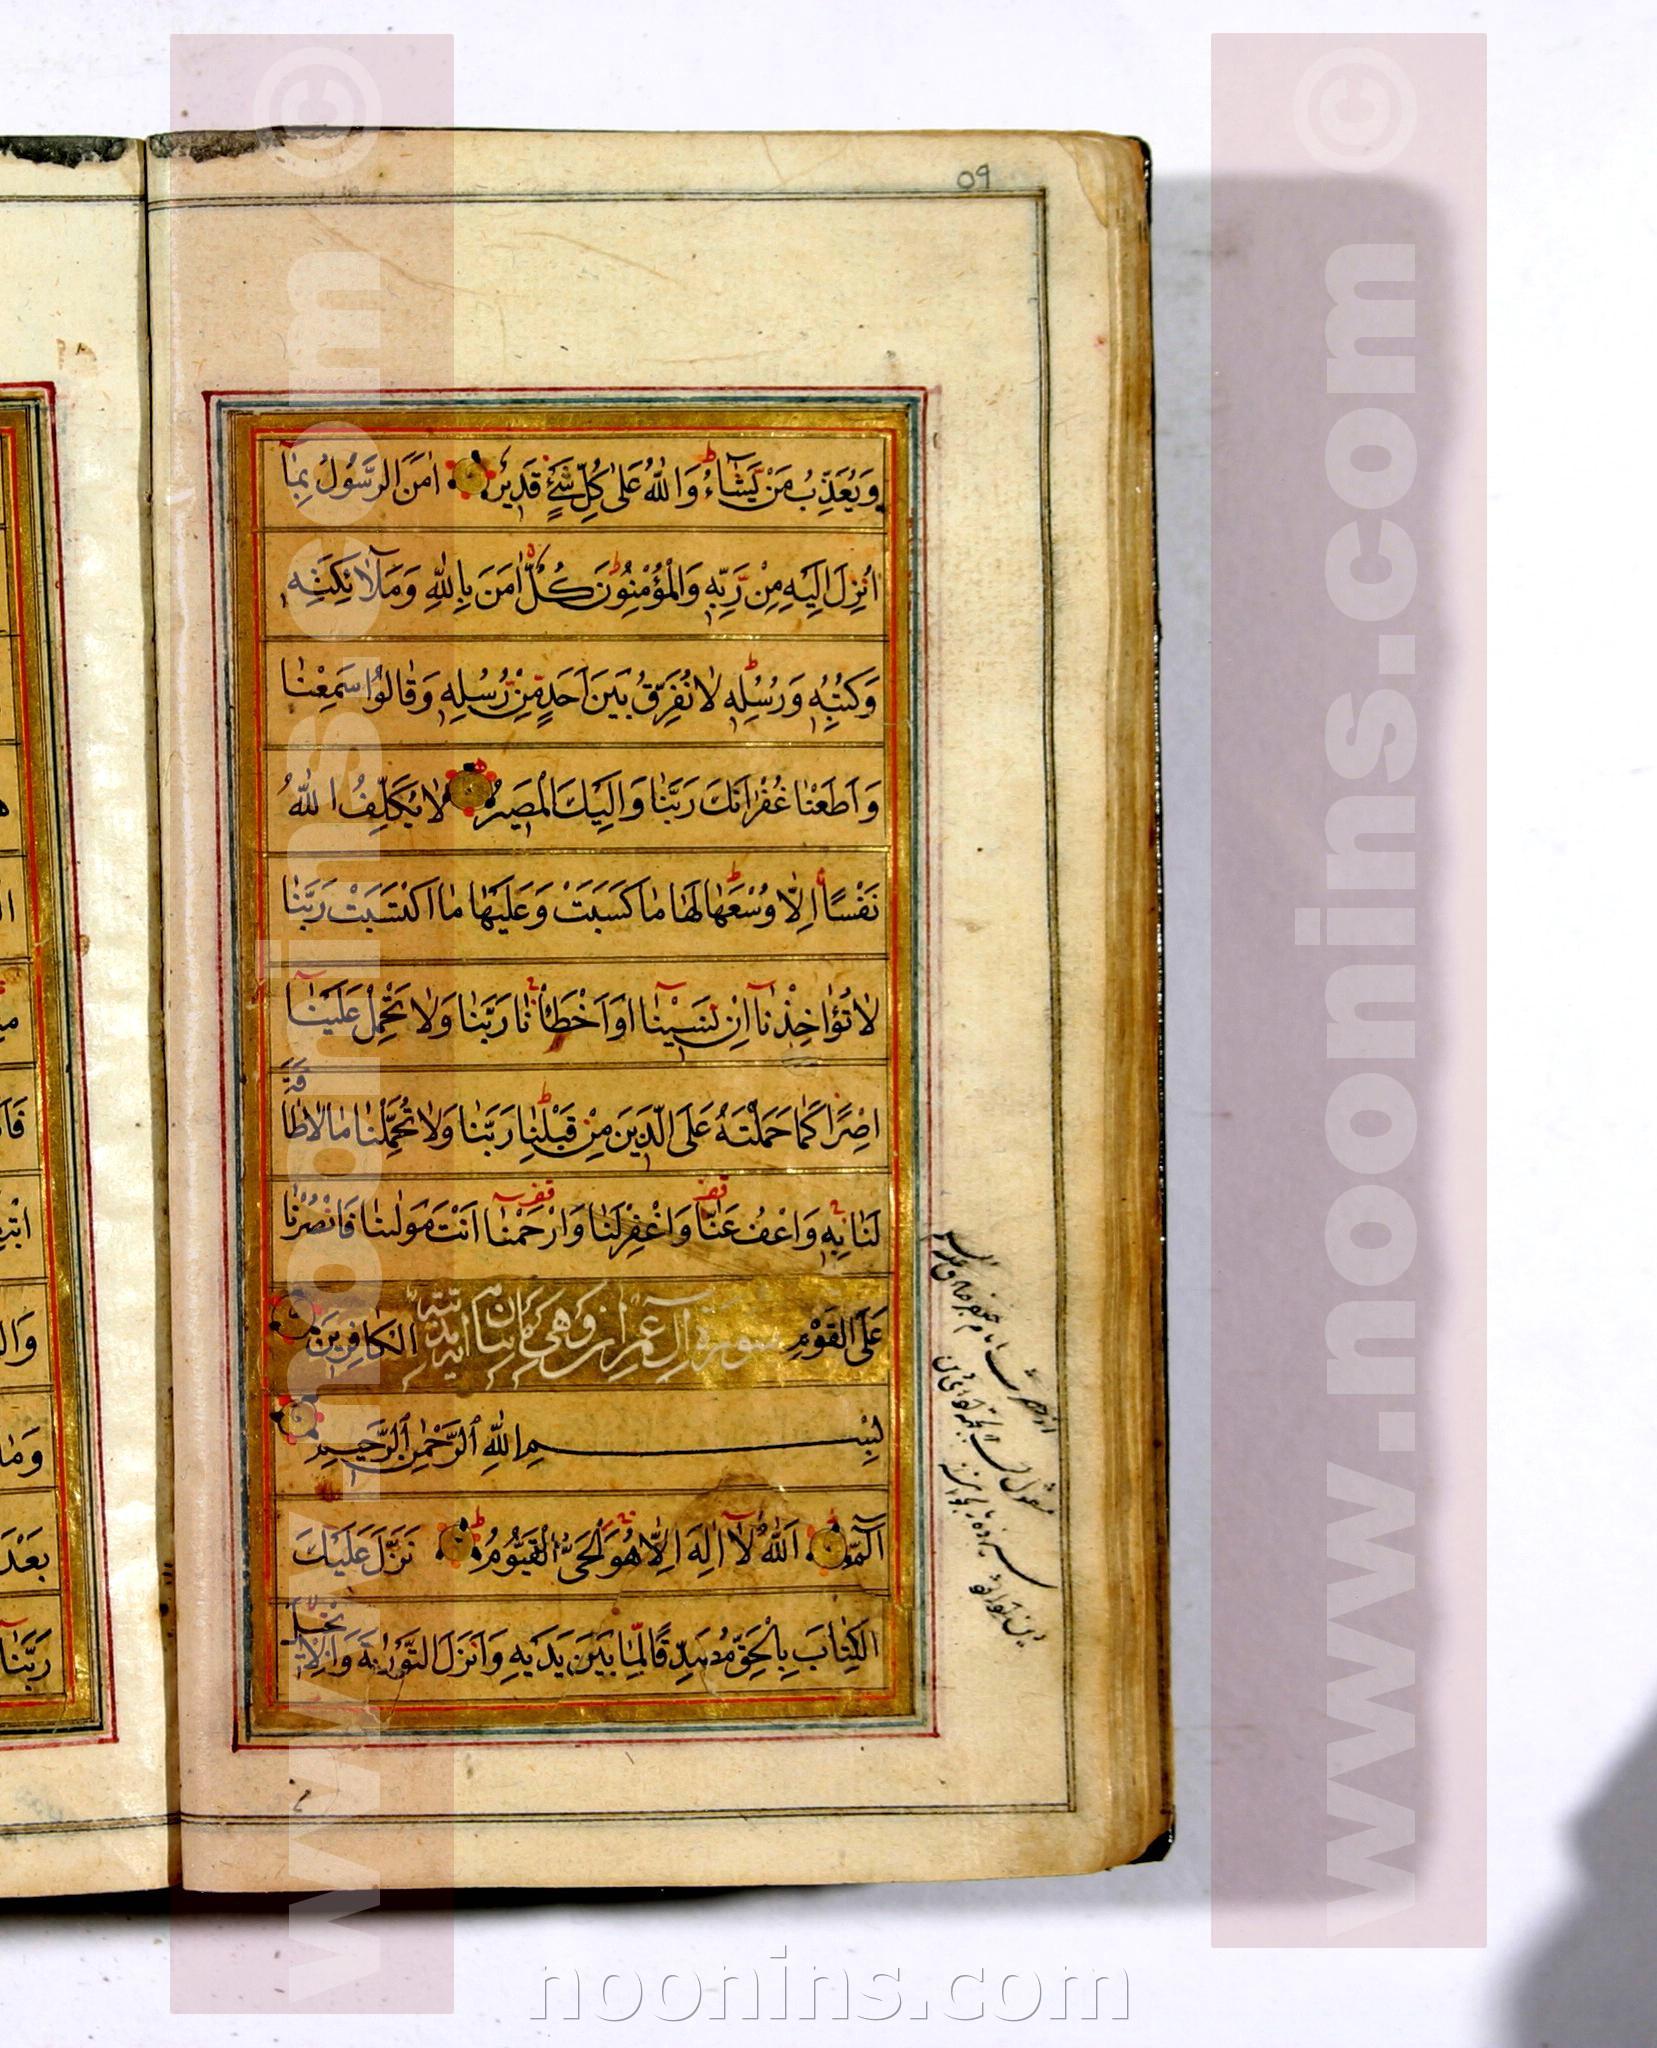 ٥٩
وَيُعَذِّبُ مَنْ يَشَآءُ وَاللّٰهُ عَلٰى كُلِّ شَىْءٍ قَدِيرٌ اٰمَنَ الرَّسُولُ بِمٰآ
اُنْزِلَ اِلَيْهِ مِنْ رَبِّهِ وَالْمُؤْمِنُونَ كُلٌّ اٰمَنَ بِاللّٰهِ وَمَلآٰئِكَتِهِ
وَكُتُبِهِ وَرُسُلِهِ لاٰ نُفَرِّقُ بَيْنَ اَحَدٍ مِنْ رُسُلِهِ وَقٰالُوا سَمِعْنٰا
وَاَطَعْنٰا غُفْرٰانَكَ رَبَّنٰا وَاِلَيْكَ الْمَصِيرُ لاٰ يُكَلِّفُ اللّٰهُ
نَفْسًا اِلّاٰ وُسْعَهٰا لَهٰا مٰا كَسَبَتْ وَعَلَيْهٰا مٰا اكْتَسَبَتْ رَبَّنٰا
لاٰ تُؤٰاخِذْنٰآ اِنْ نَسِيْنٰآ اَوْ اَخْطَاْنٰا رَبَّنٰا وَلاٰ تَحْمِلْ عَلَيْنٰآ
اِصْرًا كَمٰا حَمَلْتَهُ عَلَى الَّذِينَ مِنْ قَبْلِنٰا رَبَّنٰا وَلاٰ تُحَمِّلْنٰا مٰا لاٰ طٰاقَةَ
لَنٰا بِهِ وَاعْفُ عَنّٰا وَاغْفِرْ لَنٰا وَارْحَمْنٰا اَنْتَ مَوْلٰينٰا فَانْصُرْنٰا
عَلَى الْقَوْمِ الْكٰافِرِينَ
سورة آل عمران وهي مائتا آية
بِسْمِ اللّٰهِ الرَّحْمٰنِ الرَّحِيمِ
الٓمٓ اَللّٰهُ لآٰ اِلٰهَ اِلّاٰ هُوَ الْحَىُّ الْقَيُّومُ نَزَّلَ عَلَيْكَ
الْكِتٰابَ بِالْحَقِّ مُصَدِّقًا لِمٰا بَيْنَ يَدَيْهِ وَاَنْزَلَ التَّوْرٰيةَ وَالْاِنْجِيلَ
www.noonins.com ©
www.noonins.com ©
noonins.com